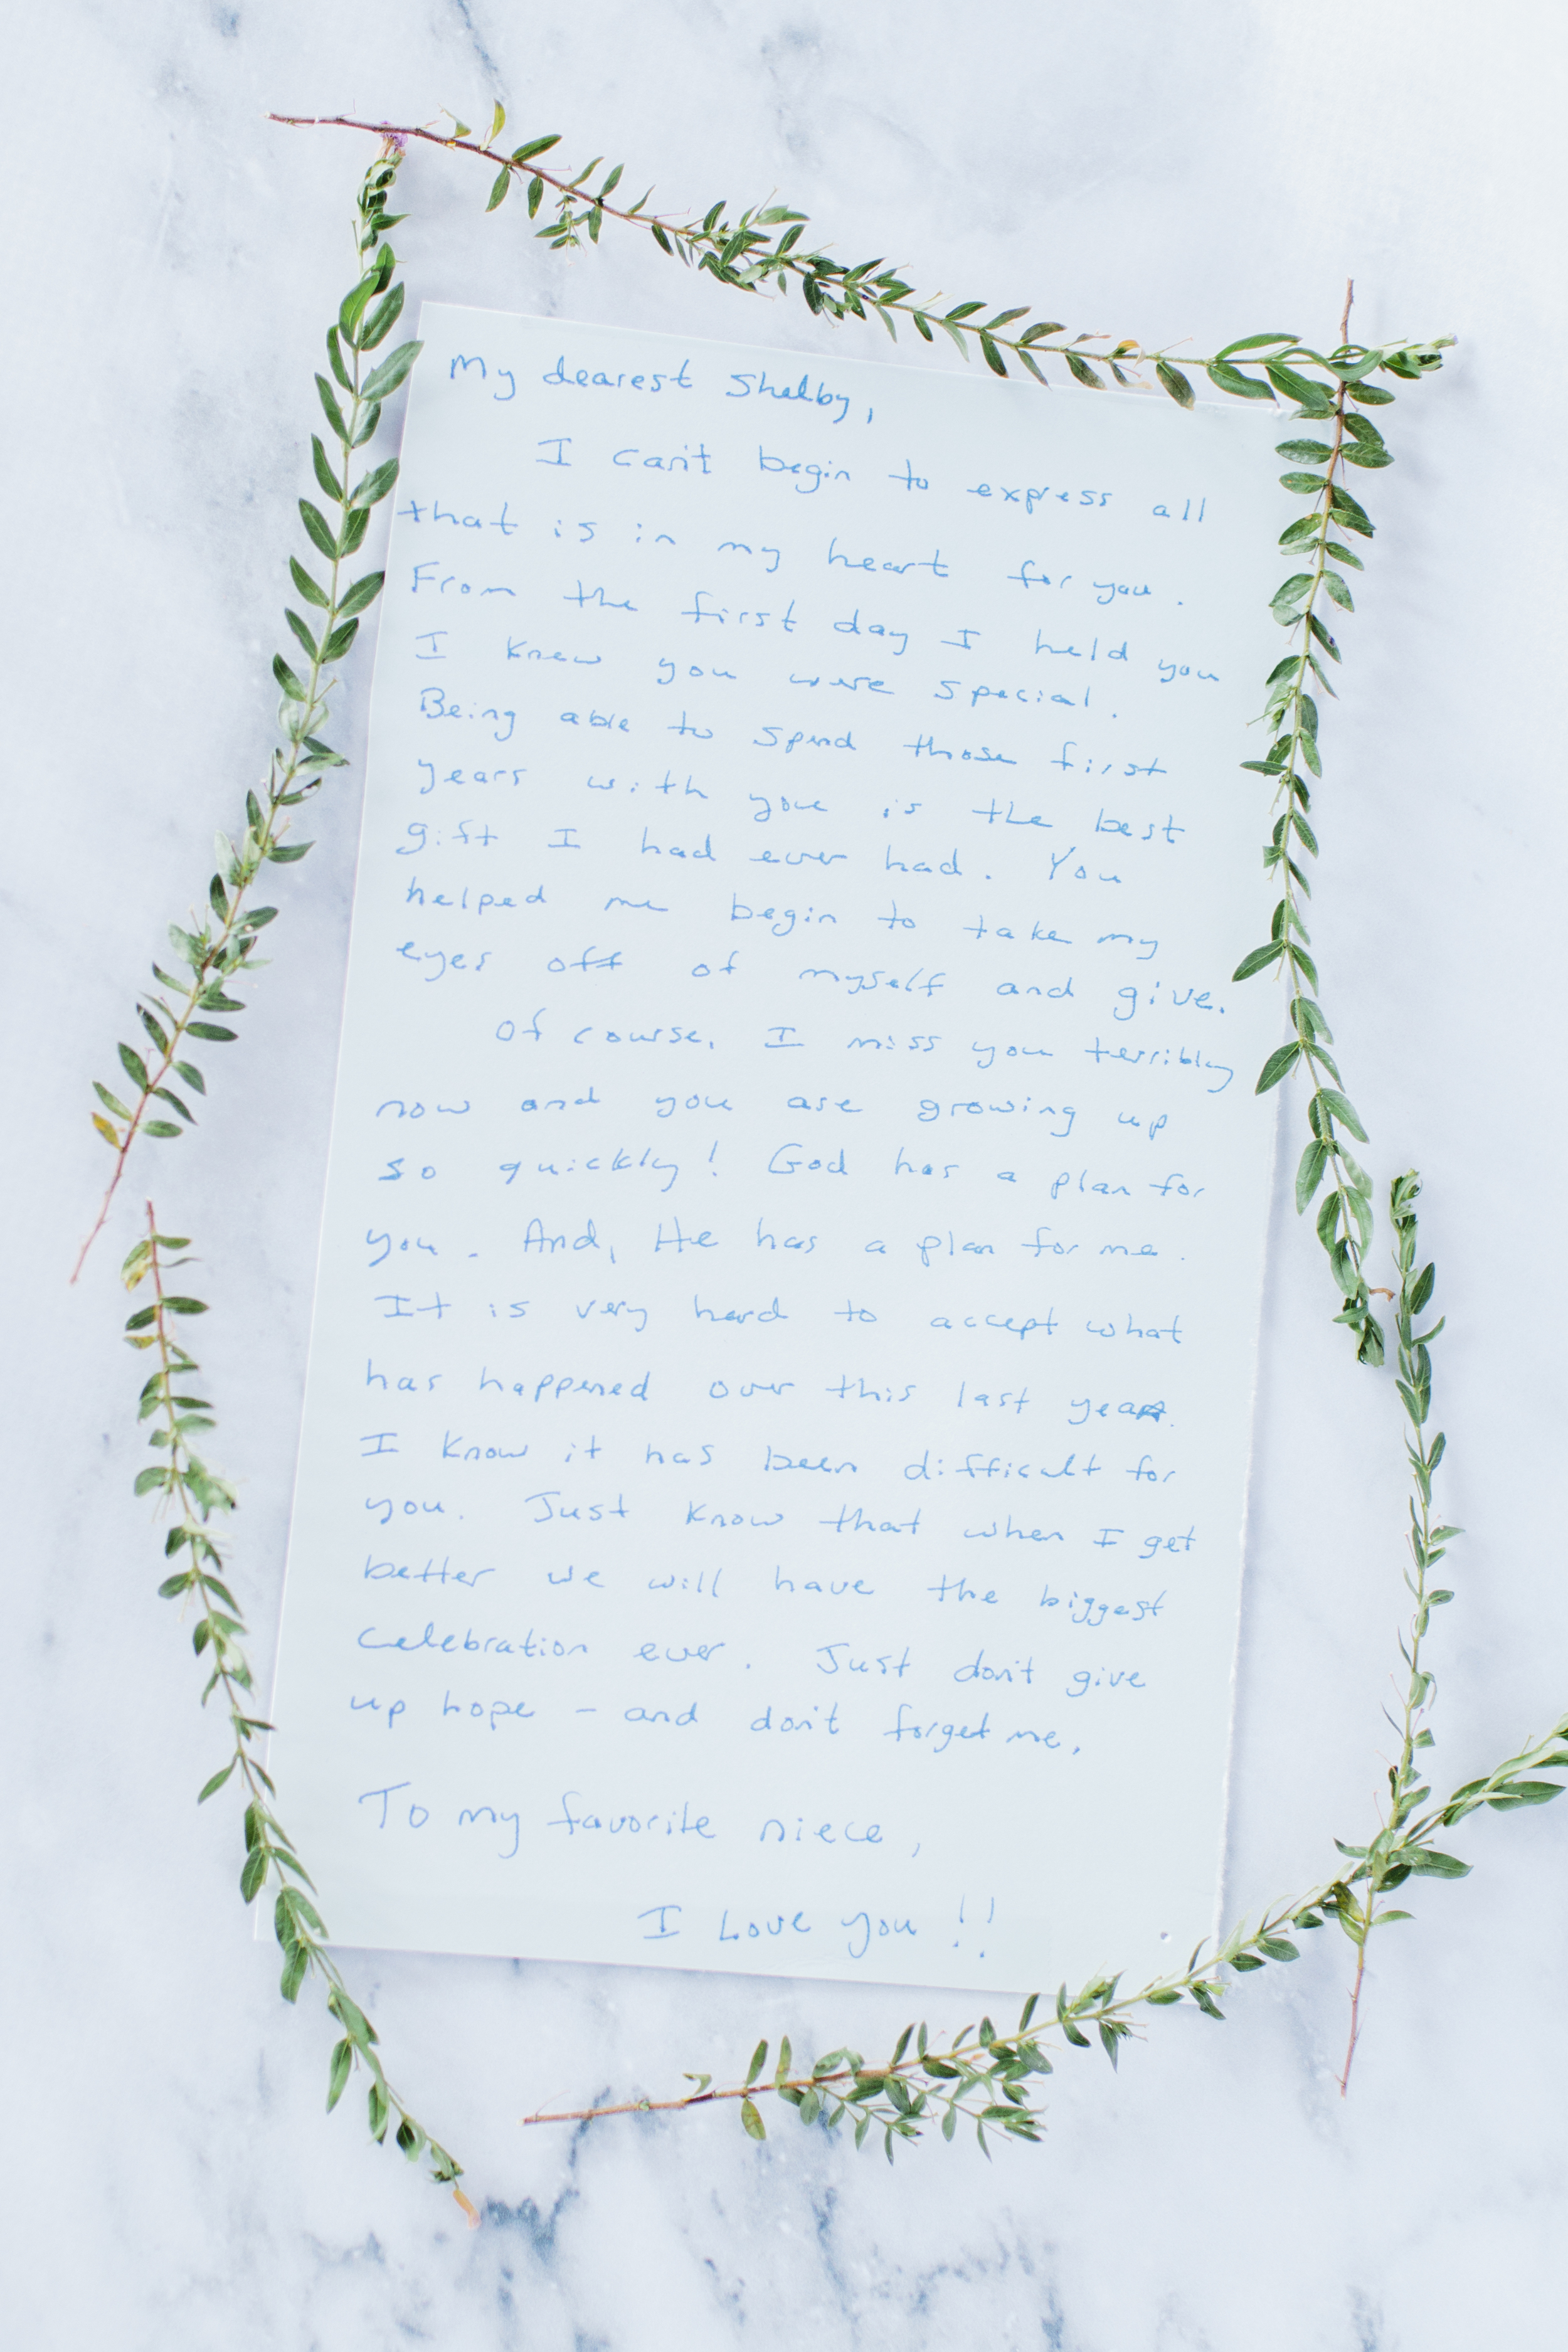 My dearest Shelby,
I can't begin to express all
that is in my heart for you.
From the first day I held you
I knew you were special.
Being able to spend those first
years with you is the best
gift I had ever had. You
helped me begin to take my
eyes off of myself and give.
Of course, I miss you terribly
now and you are growing up
so quickly! God has a plan for
you. And, He has a plan for me.
It is very hard to accept what
has happened over this last year.
I know it has been difficult for
you. Just know that when I get
better we will have the biggest
celebration ever. Just don't give
up hope - and don't forget me.
To my favorite niece,
I Love you!!